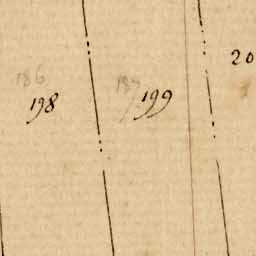 20
186 187
198 199